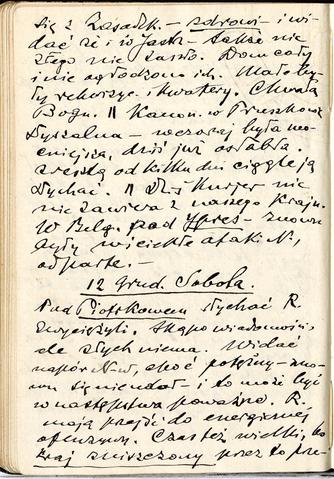 się z Zasadk. – zdrowi – i wi-
dać że i w Jastr – także nic
złego nie zaszło. Dom cały
i nie ogłodzono ich. Małe by-
ły rekwizyc. i kwatery. Chwała
Bogu. || Kanon. w Pruszkowie
słyszalna – wczoraj była mo-
cniejsza, dziś już osłabła.
zresztą od kilku dni ciągle ją
słychać. || Dziś Kurjer nic
nie zawiera z naszego Kraju.
W Belg. pod Ypres – znowu
były wściekłe ataki N.,
odparte. –
12 Grud. Sobota.
Pod Piotrkowem słychać R.
zwyciężyli. Skąpo wiadomości,
ale złych niema. Widać
napór N-ów, choć potężny – zno-
wu się nie udał – i to może być
w następstwa poważne. R.
mają przejść do energicznej
ofenzywy. Czas też wielki, bo
Kraj zniszczony przez to prze-